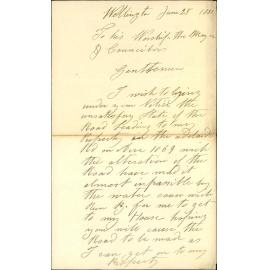 Wellington June 28 1881
To his Worship the Mayor
& Councillors
Gentlemen
I wish to bring
under your Notice the
unsatisfory State of the
Road leading to my
Property on the Adelaide
Rd on Acre 1069 with
the alteration of the
Road have mad it
almost impassible by
the water
for me to get
to my House hoping
you will cause the
Road to be maid as
I can get on to my
Property